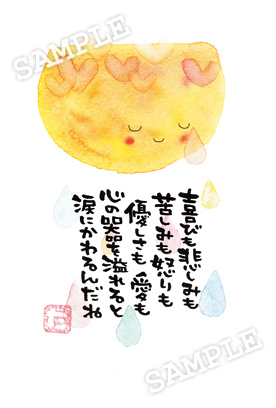 SAMPLE
喜びも悲しみも
苦しみも怒りも
優しさも 愛も
心の器を溢れると
涙にかわるんだね
SAMPLE